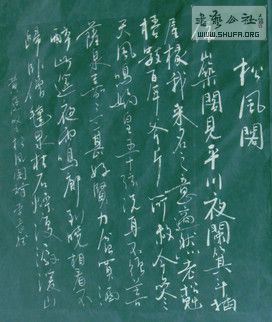 书艺公社
WWW.SHUFA.ORG
松風閣
依山築閣見平川夜闌箕斗插
屋椽我來名之意適然老松魁
梧數百年斧斤所赦今參
天風鳴媧皇五十弦洗耳不須菩
薩泉嘉二三子甚好賢力貧買酒
醉此筵夜雨鳴廊到曉懸相看不
歸臥僧氈泉枯石燥復潺湲山
黃庭堅松風閣詩